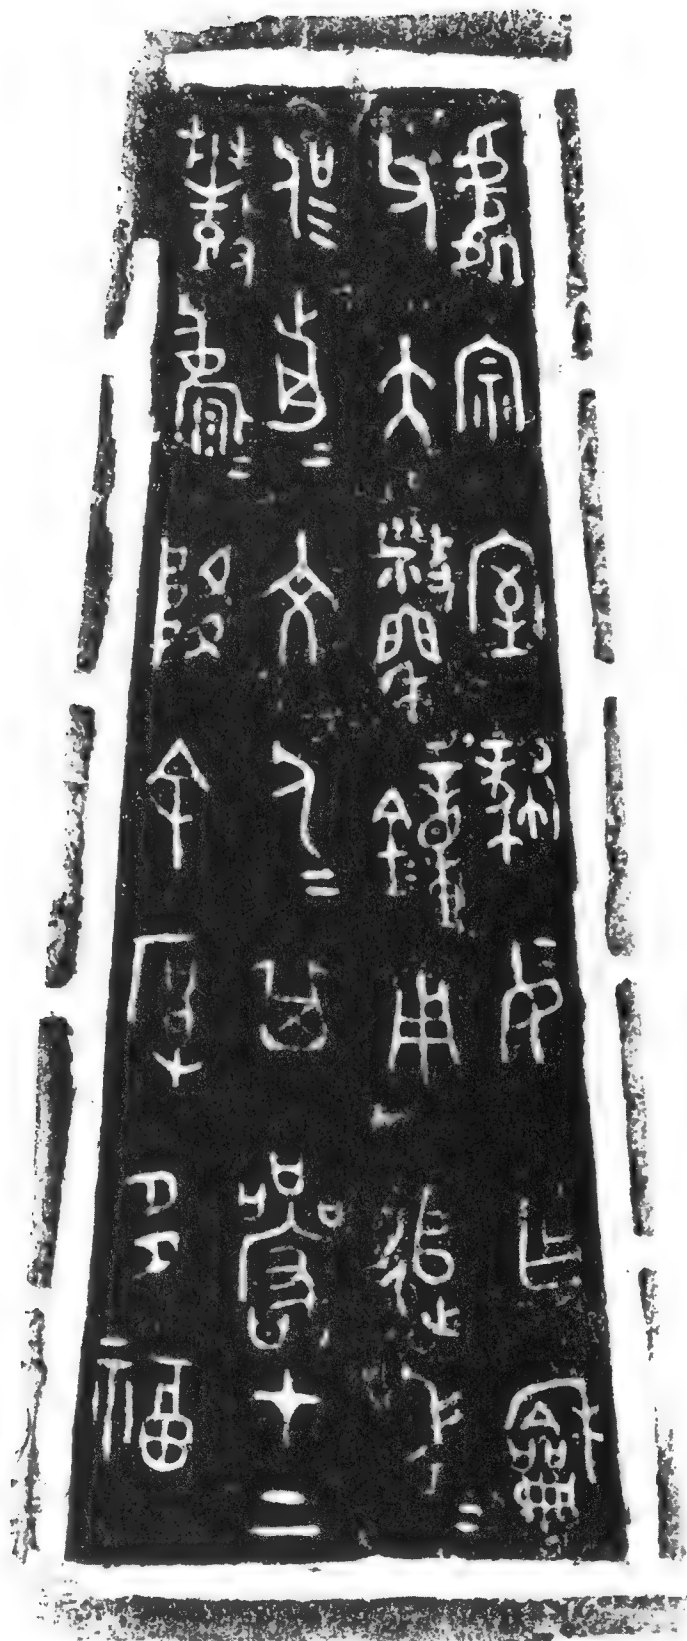 處宗室肆妄乍龢
父大林鐘用追考
侃前文人其嚴才上
降余厚多福